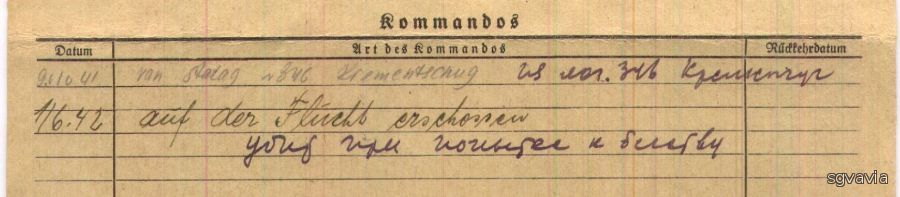 Kommandos
Datum Art des Kommandos Rückkehrdatum
9.10.41 von Stalag 346 Krementschug из лаг. 346 Кременчуг
1.6.42 auf der Flucht erschossen
убит при попытке к бегству
sgvavia